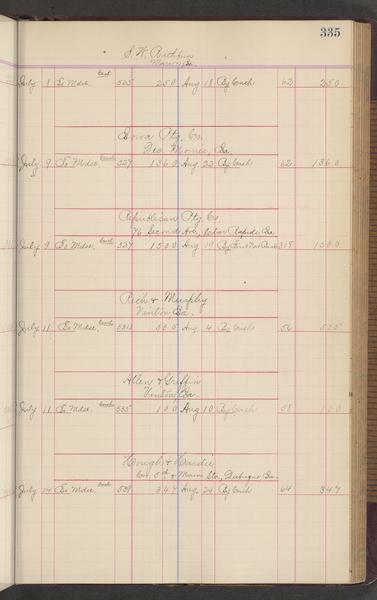 335
S. W. Rathbun
Marion, Ia.
July 8 To Mdse. Cash 525 2 5 0 Aug 18 By Cash 62 2 5 0
Iowa Ptg. Co.
Des Moines, Ia
July 9 To Mdse. 527 1 3 6 0 Aug 22 By Cash 62 1 3 6 0
Republican Ptg. Co.
76 Second Ave, Cedar Rapids, Ia
July 9 To Mdse. 527 1 5 0 0 Aug 19 By 318 1 5 0 0
Rich & Murphy
Vinton, Ia.
July 11 To Mdse. 534 5 0 5 Aug 4 By Cash 56 5 0 5
Allen & Griffin
Vinton, Ia.
July 11 To Mdse. 535 1 0 0 Aug 10 By Cash 58 1 0 0
Hough & Hardie
Cor. 5th & Main Sts., Dubuque, Ia.
July 14 To Mdse. Cash 539 3 4 7 Aug 24 By Cash 64 3 4 7